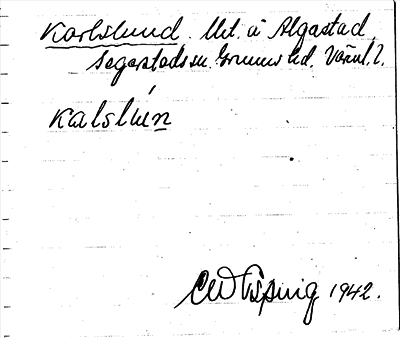 Karlslund. Utt. å Algastad,
Segerstads sn Grums hd. Värml. l.
Kalslún
1942.